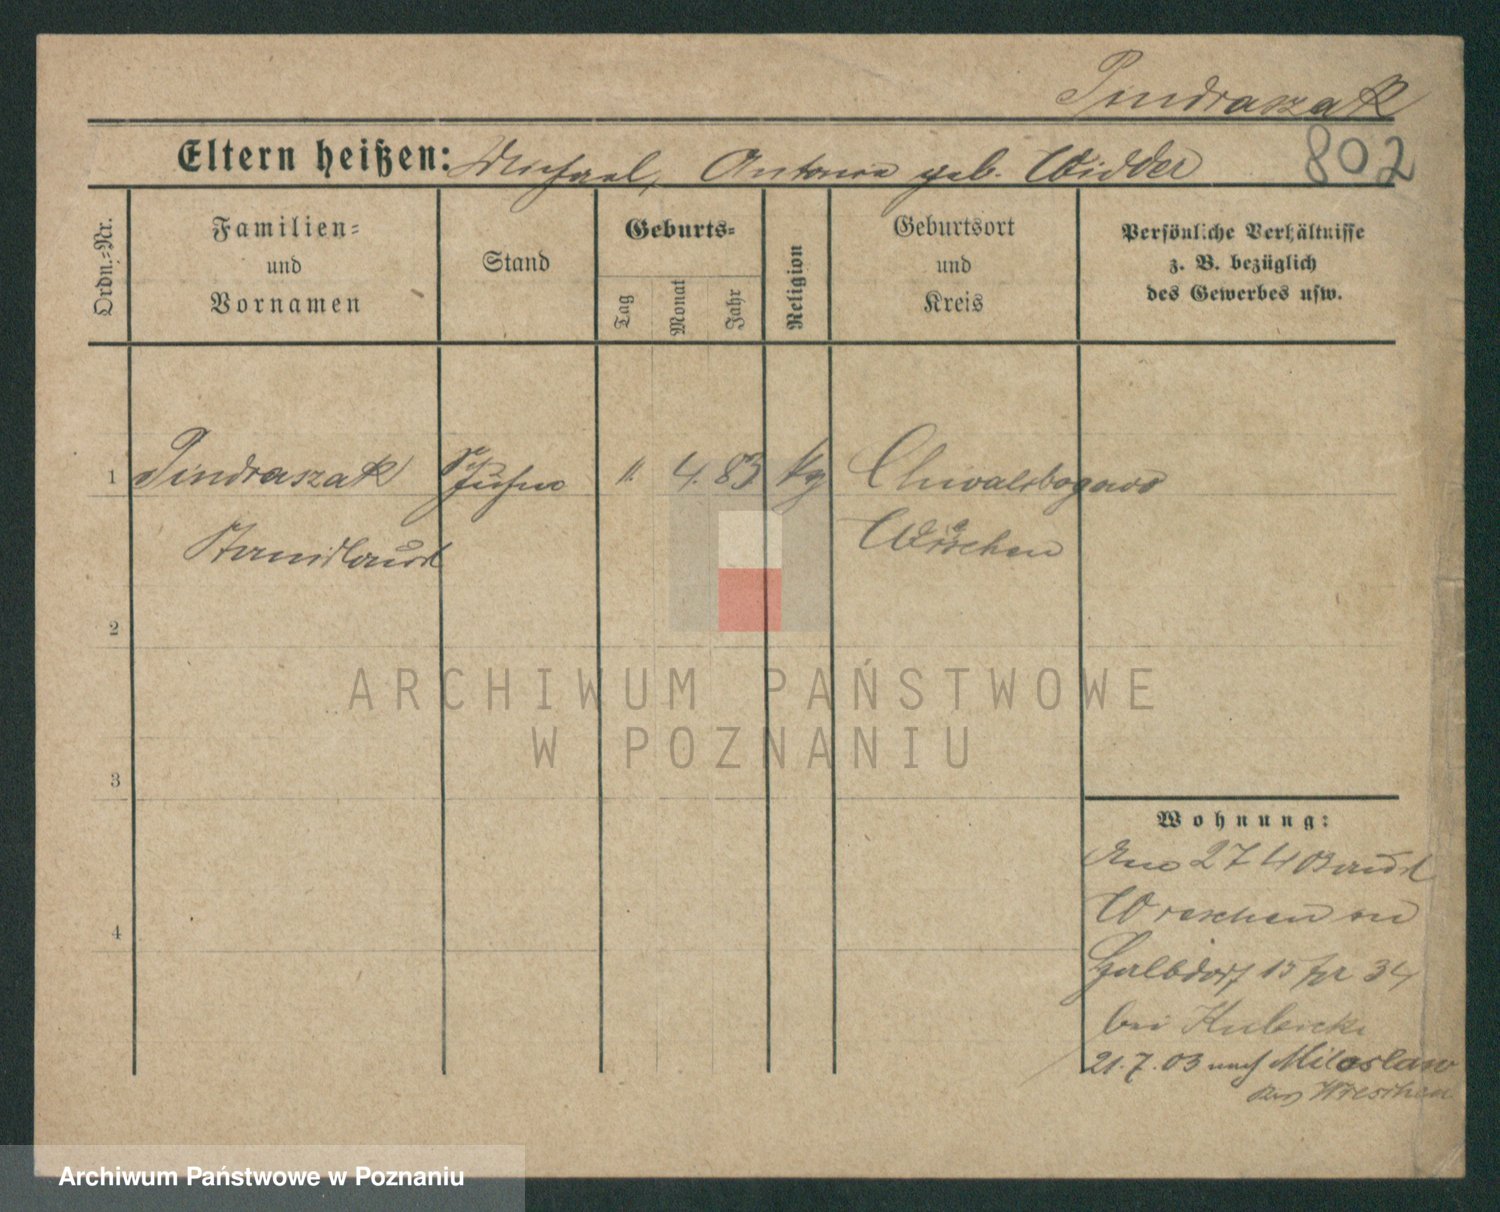 Pindraszak
802
Eltern heißen: Michael, Antonie geb. Widder
Ordn.-Nr.
Familien-
und
Vornamen
Stand
Geburts-
Tag
Monat
Jahr
Religion
Geburtsort
und
Kreis
Persönliche Verhältnisse
z. B. bezüglich
des Gewerbes usw.
1 Pindraszak 11. 4. 83 Chwalibogowo
Stanislaus Wreschen
2
3
4
ARCHIWUM PAŃSTWOWE
W POZNANIU
Wohnung:
27 4 03 aus
Wreschen
15 34
bei Kubicki
21.7.03 nach Miloslaw
Wreschen
Archiwum Państwowe w Poznaniu